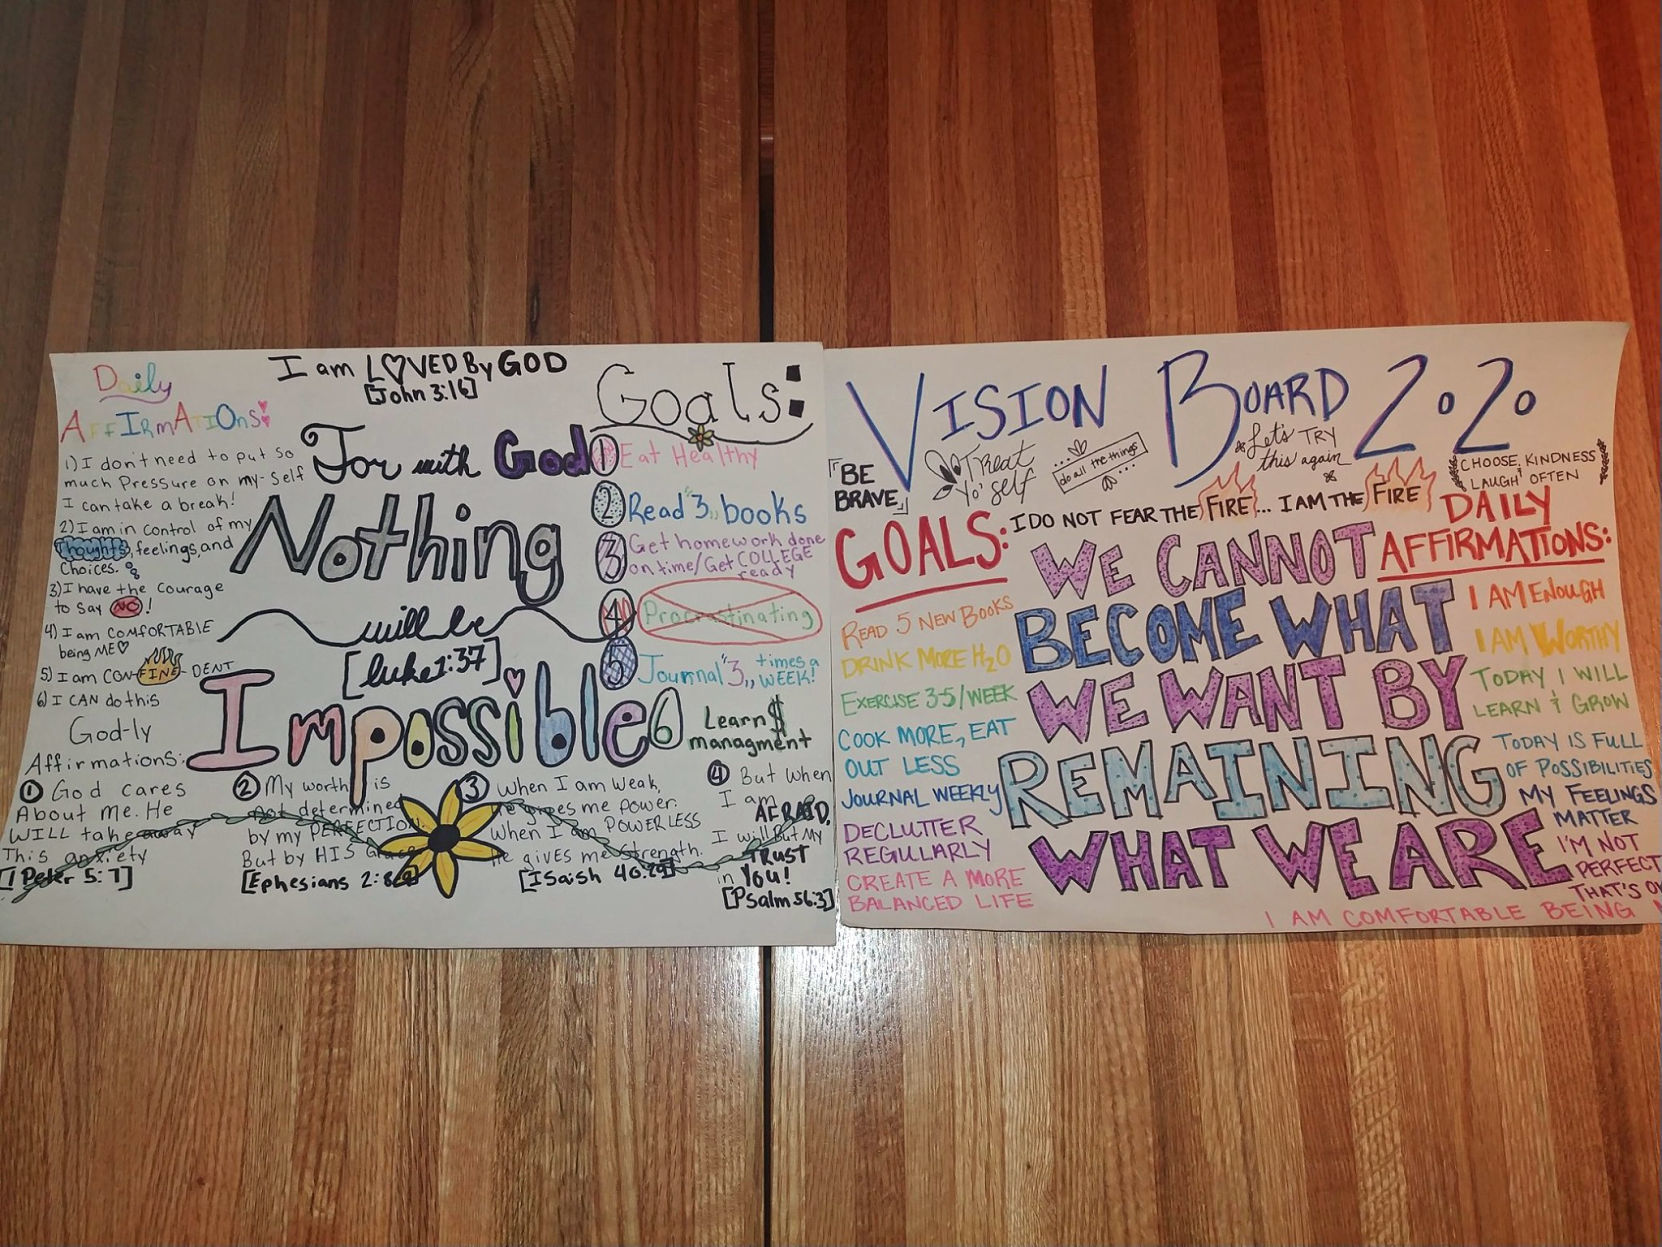 Daily
AFFIRMATIONS
1) I don't need to put so
much Pressure on my-self
I can take a break!
2) I am in control of my
Thoughts, feelings, and
Choices.
3) I have the Courage
to say NO!
4) I am COMFORTABLE
being ME
5) I am CON-FINE-DENT
6) I CAN do this
I am LOVED By GOD
[John 3:16]
For with God
Nothing
will be
[Luke 1:37]
Impossible
Goals:
1 Eat Healthy
2 Read "3" books
3 Get homework done
on time/Get COLLEGE
ready
4 Procrastinating
5 Journal "3" times a
WEEK!
6 Learn $
managment
God-ly
Affirmations:
1 God cares
About me. He
WILL take away
This anxiety
[1 Peter 5:7]
2 My worth is
not determined
by my PERFECTION
But by HIS Grace
[Ephesians 2:
3 When I am weak,
He gives me power.
When I am POWERLESS
He gives me strength.
[Isaiah 40:29]
4 But when
I am
AFRAID,
I will Put MY
TRUST
in You!
[Psalm 56:3]
VISION BOARD 2020
"BE
BRAVE"
Treat
Yo' Self
do all the things
Let's TRY
this again
CHOOSE KINDNESS
LAUGH OFTEN
I DO NOT FEAR THE FIRE... I AM THE FIRE
GOALS:
READ 5 NEW BOOKS
DRINK MORE H2O
EXERCISE 3-5/WEEK
COOK MORE, EAT
OUT LESS
JOURNAL WEEKLY
DECLUTTER
REGULARLY
CREATE A MORE
BALANCED LIFE
WE CANNOT
BECOME WHAT
WE WANT BY
REMAINING
WHAT WE ARE
DAILY
AFFIRMATIONS:
I AM ENOUGH
I AM WORTHY
TODAY I WILL
LEARN & GROW
TODAY IS FULL
OF POSSIBILITIES
MY FEELINGS
MATTER
I'M NOT
PERFECT
THAT'S
I AM COMFORTABLE BEING